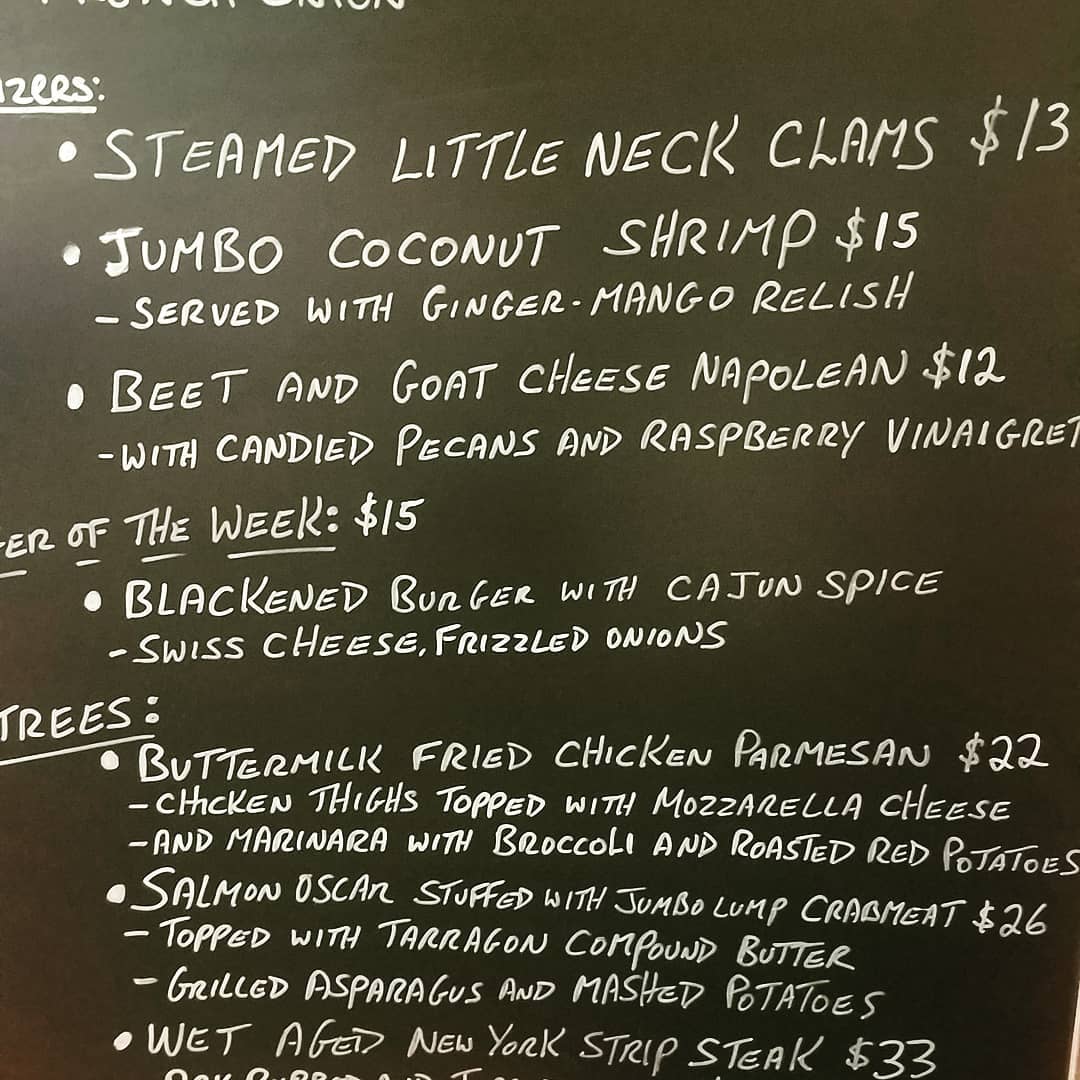 ONION
IZERS:
• STEAMED LITTLE NECK CLAMS $13
• JUMBO COCONUT SHRIMP $15
- SERVED WITH GINGER-MANGO RELISH
• BEET AND GOAT CHEESE NAPOLEAN $12
- WITH CANDIED PECANS AND RASPBERRY VINAIGRET
ER OF THE WEEK: $15
• BLACKENED BURGER WITH CAJUN SPICE
- SWISS CHEESE, FRIZZLED ONIONS
TREES:
• BUTTERMILK FRIED CHICKEN PARMESAN $22
- CHICKEN THIGHS TOPPED WITH MOZZARELLA CHEESE
- AND MARINARA WITH BROCCOLI AND ROASTED RED POTATOES
• SALMON OSCAR STUFFED WITH JUMBO LUMP CRABMEAT $26
- TOPPED WITH TARRAGON COMPOUND BUTTER
- GRILLED ASPARAGUS AND MASHED POTATOES
• WET AGED NEW YORK STRIP STEAK $33